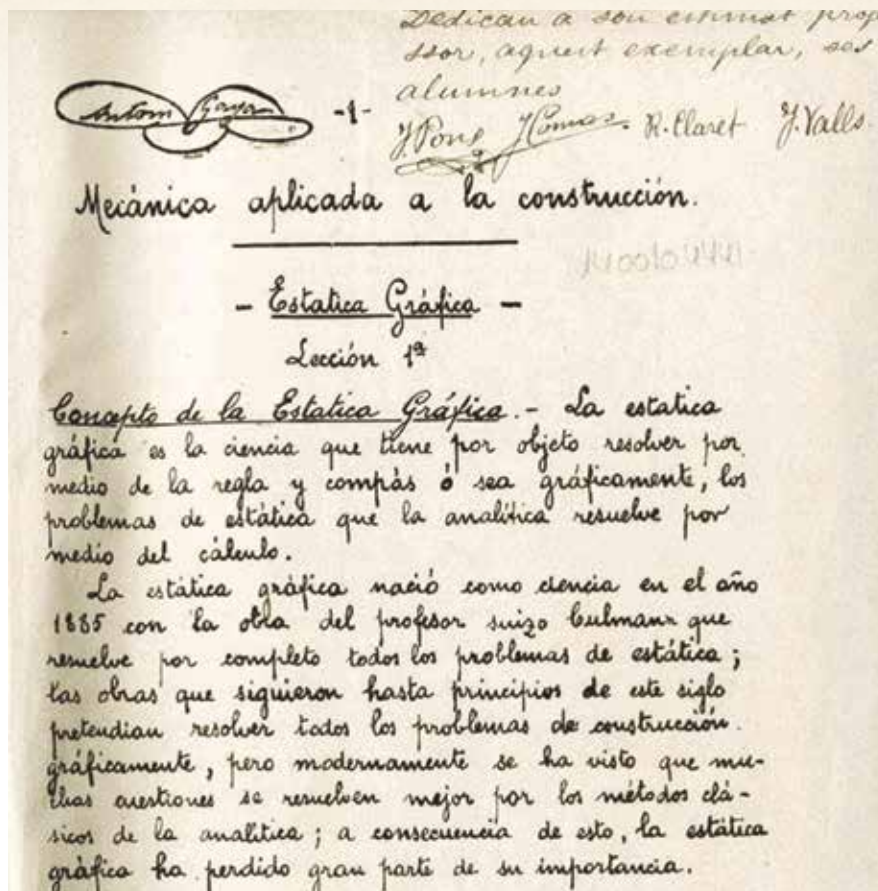 Dedican a son estimat prof
ssor, aquest exemplar, sos
alumnes
Antoni Gaya
-1-
J. Pons J Comas. R. Claret J. Valls.
Mecánica aplicada a la construcción.
- Estatica Gráfica -
Lección 1ª
Concepto de la Estatica Gráfica.- La estatica
gráfica es la ciencia que tiene por objeto resolver por
medio de la regla y compás ó sea gráficamente, los
problemas de estática que la analítica resuelve por
medio del cálculo.
La estática gráfica nació como ciencia en el año
1885 con la obra del profesor suizo Culmann que
resuelve por completo todos los problemas de estática;
las obras que siguieron hasta principios de este siglo
pretendian resolver todos los problemas de construcción
gráficamente, pero modernamente se ha visto que mu-
chas cuestiones se resuelven mejor por los métodos clá-
sicos de la analítica; a consecuencia de esto, la estática
gráfica ha perdido gran parte de su importancia.